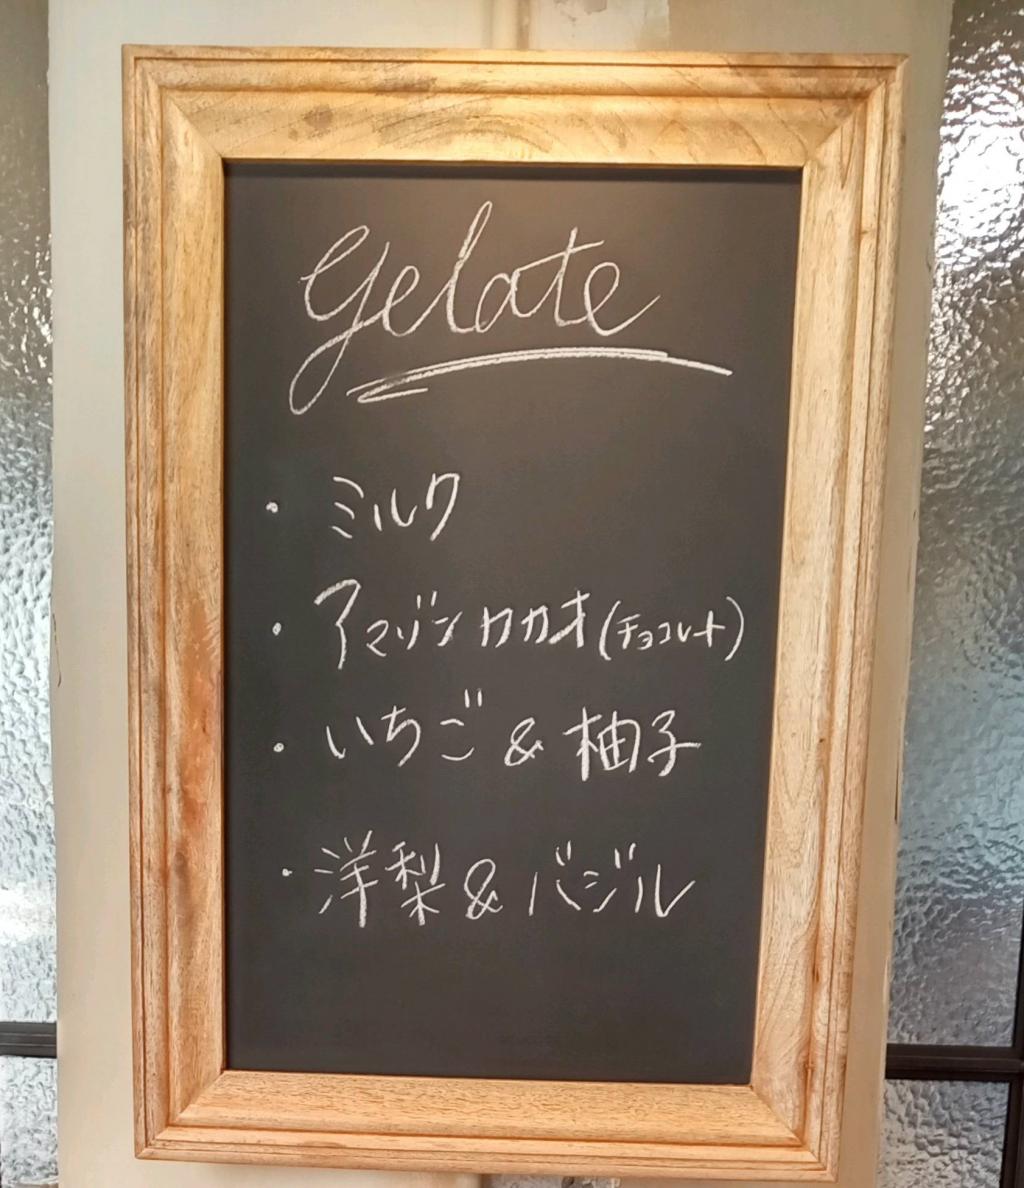 gelate
・ミルク
・アマゾンカカオ(チョコレート)
・いちご & 柚子
・洋梨 & バジル